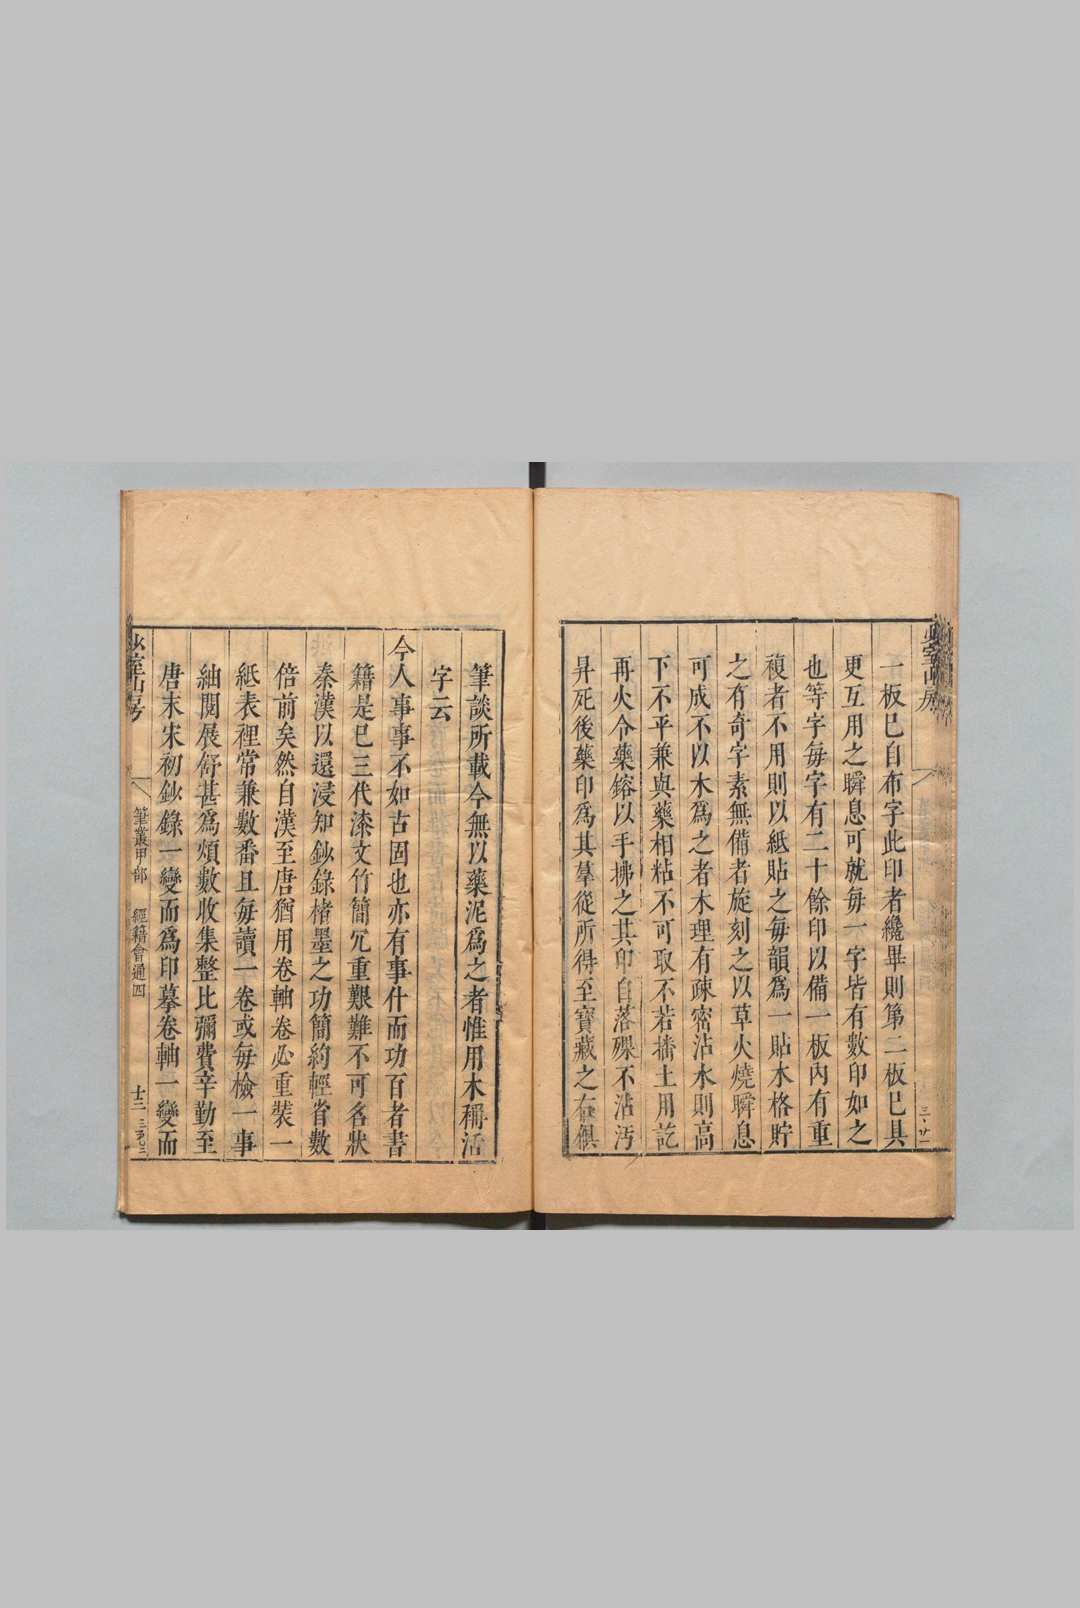 一板已自布字此印者纔畢則第二板已具
更互用之瞬息可就每一字皆有數印如之
也等字每字有二十餘印以備一板內有重
複者不用則以紙貼之每韻爲一貼木格貯
之有奇字素無備者旋刻之以草火燒瞬息
可成不以木爲之者木理有疎密沾水則高
下不平兼與藥相粘不可取不若燔土用訖
再火令藥鎔以手拂之其印自落殊不沾汚
昇死後藥印爲其羣從所得至寶藏之右俱
筆談所載今無以藥泥爲之者惟用木稱活
字云
今人事事不如古固也亦有事什而功百者書
籍是已三代漆文竹簡冗重艱難不可名狀
秦漢以還浸知鈔錄楮墨之功簡約輕省數
倍前矣然自漢至唐猶用卷軸卷必重裝一
紙表裡常兼數番且每讀一卷或每檢一事
紬閱展舒甚爲煩數收集整比彌費辛勤至
唐末宋初鈔錄一變而爲印摹卷軸一變而
少室山房
筆叢甲部
經籍會通四
十二